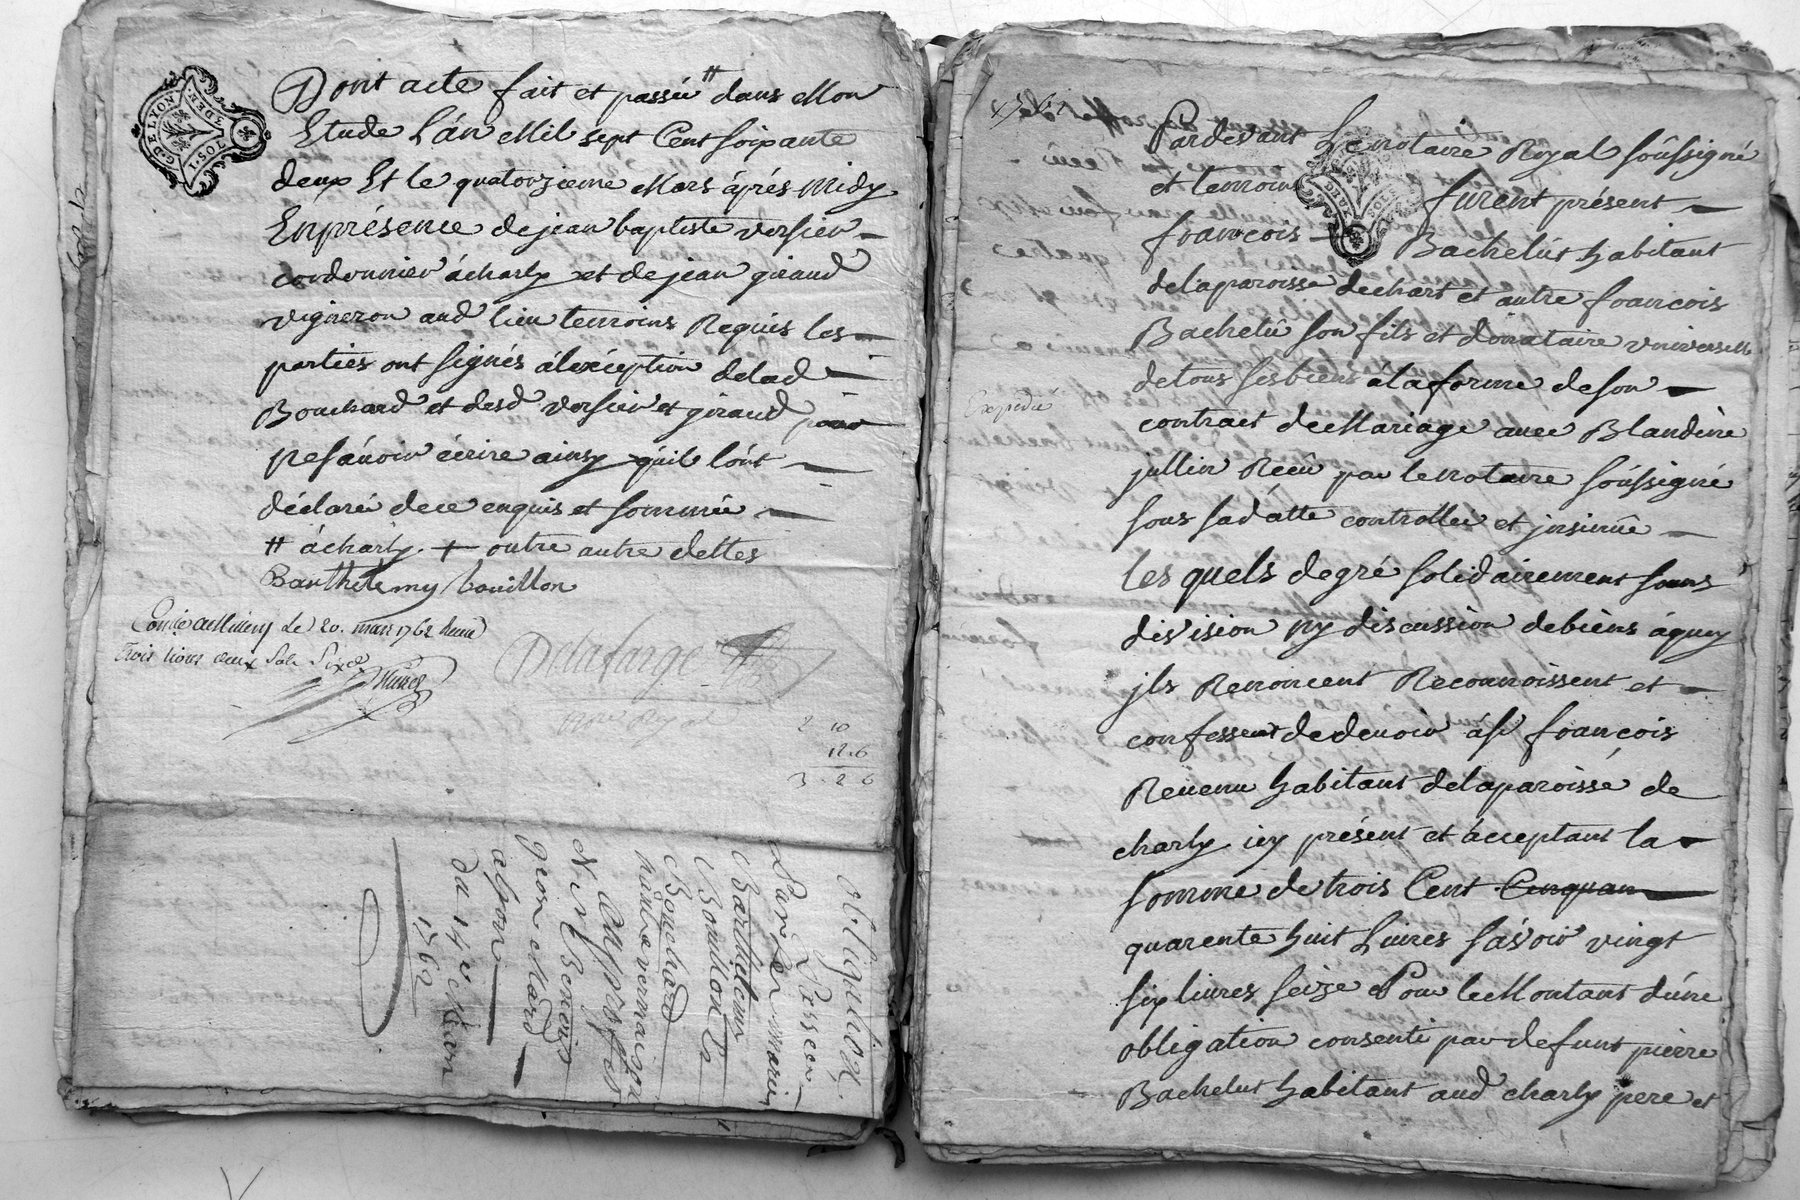 G. DE LYON
I. SOL 2 DEN.
Dont acte fait et passé # dans Mon
Etude L'án Mil sept Cent soixante
deux Et le quatorzieme Mars áprés Midy
En présence de jean baptiste versier
cordonnier ácharly et de jean giraud
vigneron aud lieu temoins Requis les
parties ont signés álexéption delad
Bouchard et desd versier et giraud pour
ne sáuoir écrire ainsy quils lónt
déclaré dece enquis et sommés
# ácharly. + outre autre dettes
Barthelemy bouillon
le 20. mars 1762
trois livres deux sols six
Delafarge
Nore Royal
2 10
12.6
3.2 6
obligation
Barthelemy
Bouillon la
Bouchard
Benoist
alpon
du 14e Mars
1762
Expedié
Pardevant Le notaire Royal soûssigné
et temoins furent présent
francois Bachelut habitant
delaparoisse de chart et autre francois
Bachelû son fils et donataire universelle
detous ses biens álaforme de son
contract de Mariage avec Blandine
jullin Recû par le notaire soûssigné
sous sa dátte controllé et jnsinué
les quels degré solidairement sans
division ny discussion debiens áquoy
jls Renoncent Reconnoissent et
confessent dedevoir ásr francois
Reuenu habitant delaparoisse de
charly icy présent et ácceptant la
somme de trois Cent Cinquan
quarente huit Livres sávoir vingt
six livres seize Pour le Montant d'une
obligation consenti par defunt pierre
Bachelut habitant aud charly pere et